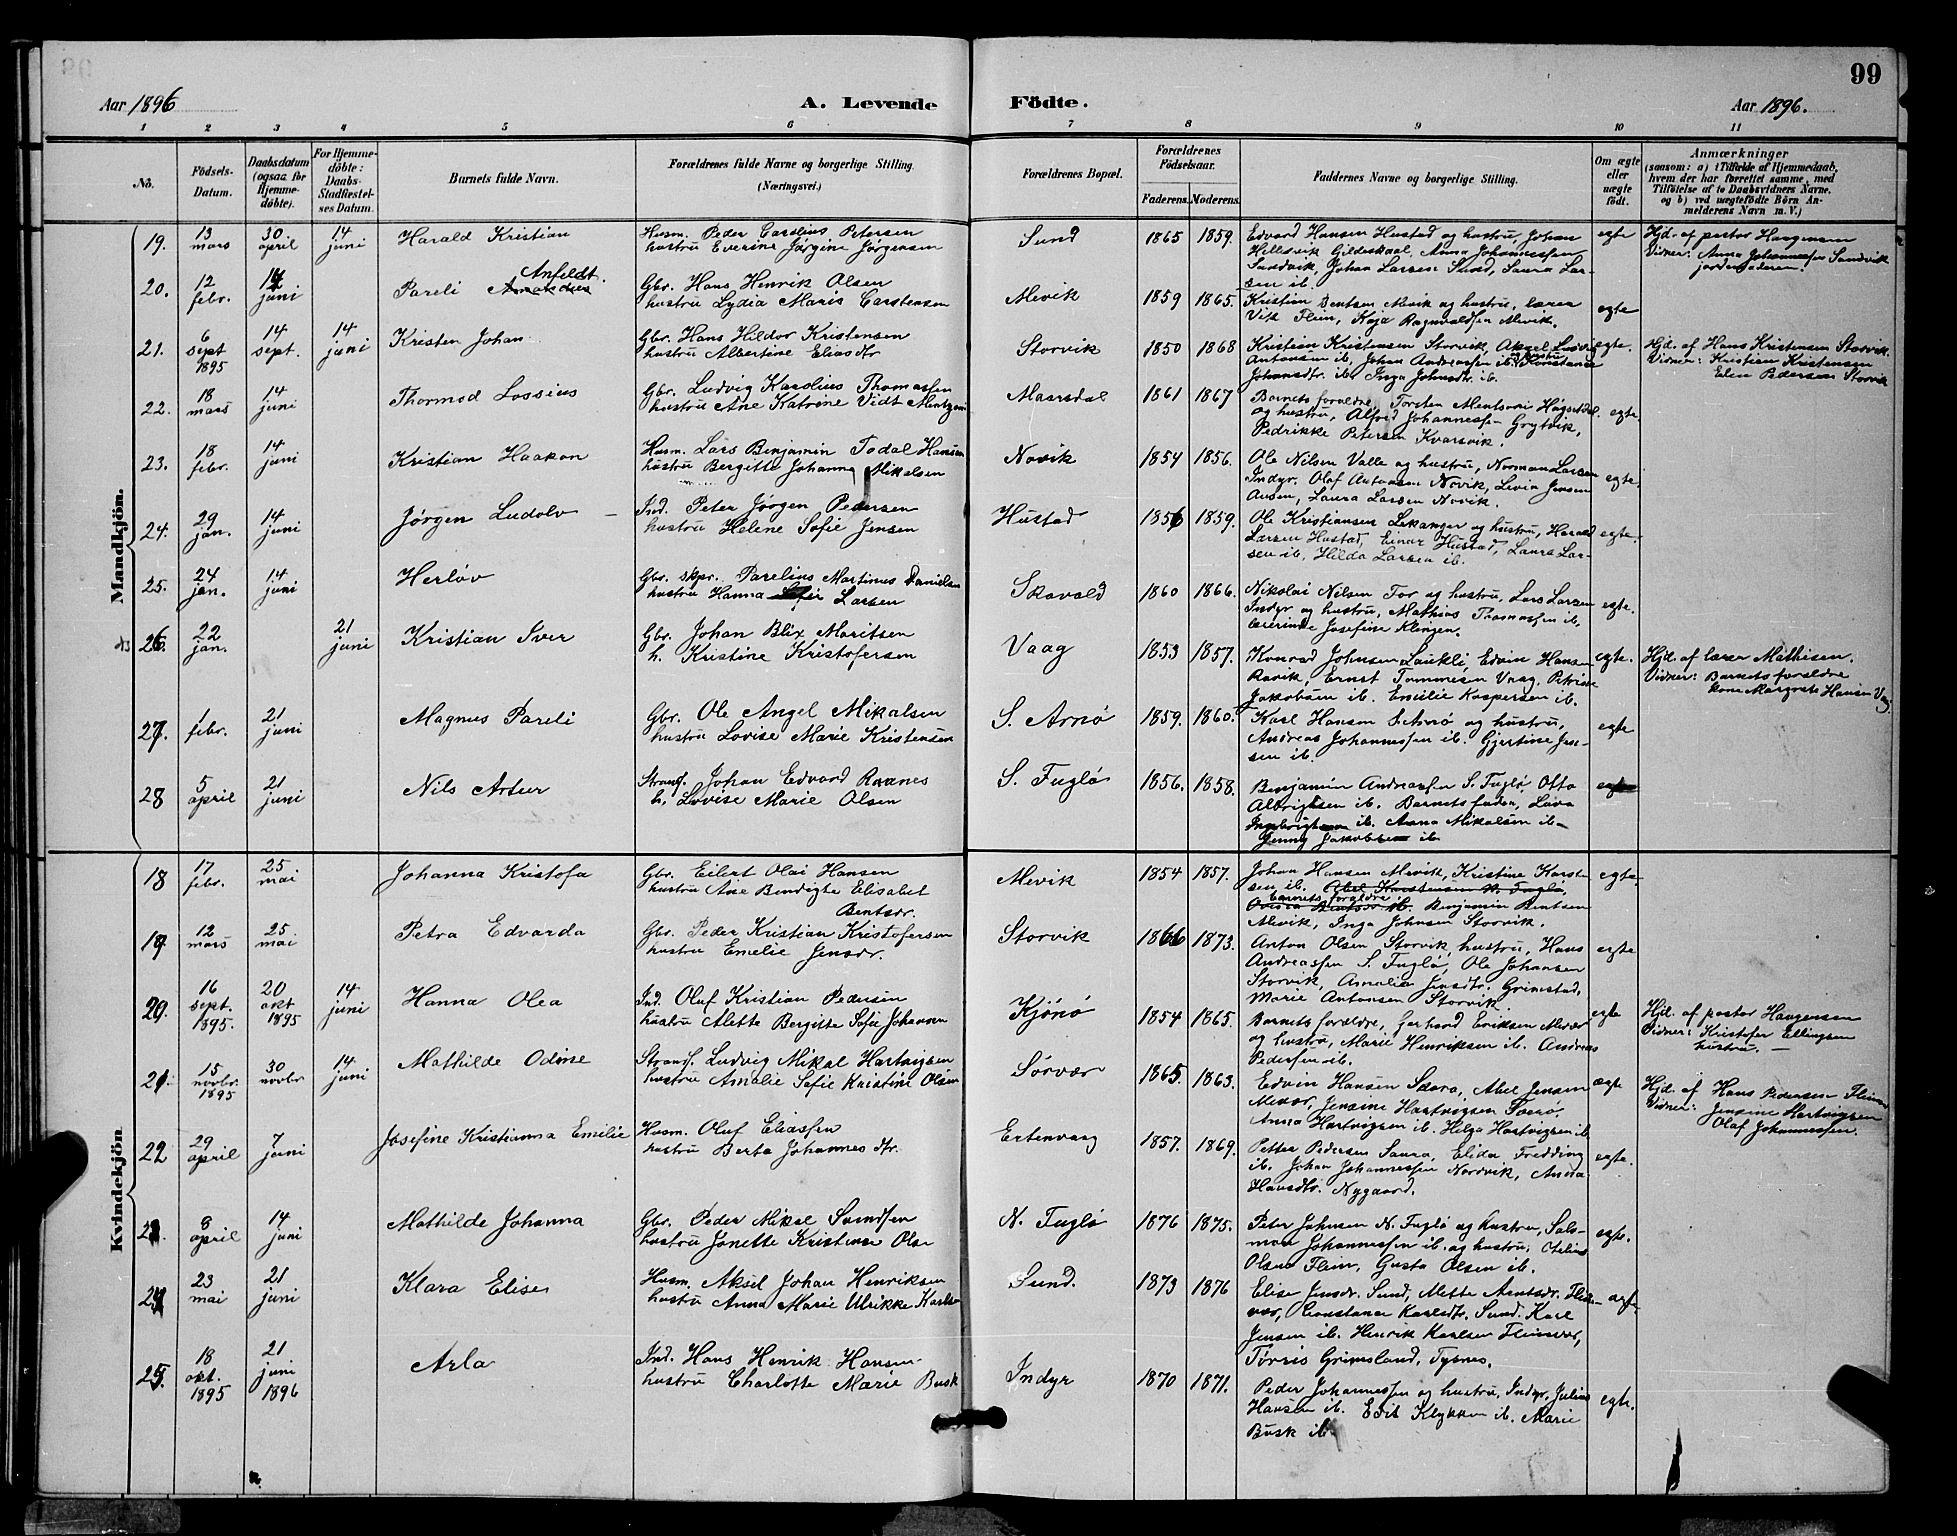 99
Aar 1896
A. Levende
Födte.
Aar 1896.
1 2 3 4 5 6 7 8 9 10 11
No.
Födsels-
Datum.
Daabsdatum
(ogsaa for
Hjemme-
döbte).
For Hjemme-
döbte:
Daabs-
Stadfæstel-
ses Datum.
Barnets fulde Navn.
Forældrenes fulde Navne og borgerlige Stilling.
(Næringsvei.)
Forældrenes Bopæl.
Forældrenes
Födselsaar.
Faderens. Moderens.
Faddernes Navne og borgerlige Stilling.
Om ægte
eller
uægte
født.
Anmærkninger
(saasom: a) i Tilfælde af Hjemmedaab,
hvem der har forrettet samme, med
Tilföielse af to Daabsvidners Navne,
og b) ved uægtefödte Börn An-
melderens Navn m. V.)
Mandkjön.
19. 13 mars 30 april 14 juni Harald Kristian
Husm. Peder Carelius Petersen
hustru Everine Jörgine Jörgensen
Sund 1865 1859.
Edvard Hansen Hustad og hustru Johan
Hillesvik Gildeskaal, Anna Johannessen
Sandvik, Johan Larsen Sund, Laura Lar-
sen ib.
egte
Hjd. af pastor Haugensen
Vidner: Anna Johannessen Sandvik
jordemoderen.
20. 12 febr. 14 juni Pareli Anfeldt.
Gbr. Hans Henrik Olsen
hustru Lydia Maris Carstensen
Mevik 1859 1865.
Kristian Bentsen Mevik og hustru, lærer
Vik Flein, Kaja Ragnvaldsen Mevik.
egte
21. 6 sept 1895 14 sept. 14 juni Kristen Johan
Gbr. Hans Hildor Kristensen
hustru Albertine Eliasdtr
Storvik 1850 1868
Kristian Kristensen Storvik, Aksel Ludvig
Antonsen ib. Johan Andreassen ib. og hustru Konstance
Johansdtr. ib. Inga Johnsdtr. ib.
egte.
Hjd. af Hans Kristensen Storvik
Vidner: Kristian Kristensen
Elen Pedersen Storvik
22. 18 mars 14 juni Thormod Lossius
Gbr. Ludvig Karolius Thomassen
hustru Ane Katrine Vidt Mentzoni
Maarsdal 1861 1867
Barnets forældre, Torsten Mentsoni Högsetdal
og hustru, Alfred Johannessen Grytvik,
Pedrikke Petersen Kvarsvik.
egte.
23. 18 febr. 14 juni Kristian Haakon
Husm. Lars Benjamin Todal Hansen
hustru Bergitte Johanna Mikalsen
Novik 1854 1856.
Ole Nilsen Valle og hustru, Norman Larsen
Indyr. Olaf Antonsen Novik, Levia Jensen
Ausen, Laura Larsen Novik.
egte.
24. 29 jan. 14 juni Jörgen Ludolv
Ind. Peter Jörgen Pedersen
hustru Helene Sofie Jensen
Hustad 1856 1859.
Ole Kristiansen Lekanger og hustru, Harald
Larsen Hustad, Einar Hustad, Laura Lar-
sen ib. Hilda Larsen ib.
egte.
25. 24 jan. 14 juni Herlöv
Gbr. skpr. Parelius Martinus Danielsen
hustru Hanna Sofie Larsen
Skavold 1860 1866.
Nikolai Nilsen Tor og hustru, Lars Larsen
Indyr og hustru, Mathias Thomassen ib.
lærerinde Josefine Klingen.
egte.
26. 22 jan. 21 juni Kristian Iver
Gbr. Johan Blix Maritsen
h. Kristine Kristofersen
Vaag 1853 1857.
Konrad Johnsen Laukli, Edvin Hansen
Ravik, Ernst Tommesen Vaag, Petrine
Jakobsen ib. Emilie Kaspersen ib.
egte.
Hjd. af lærer Mathisen.
Vidner: Barnets forældre
kone Margrete Hansen Vaag.
27. 1 febr. 21 juni Magnus Pareli
Gbr. Ole Angel Mikalsen
hustru Lovise Marie Kristensen
S. Arnö 1859. 1860.
Karl Hansen S. Arnö og hustru,
Andreas Johannessen ib. Gjertine Jen-
sen ib.
egte
28 5 april 21 juni Nils Artur
Strands. Johan Edvard Ravnes
h. Lovise Marie Olsen
S. Fuglö 1856. 1858.
Benjamin Andreassen S. Fuglö Otto
Albrigtsen ib. Barnets fader, Lava
Ingebrigtsen ib. Anna Mikalsen ib.
Jenny Jakobsen ib.
egte
Kvindekjön
18 17 febr. 25 mai Johanna Kristofa
Gbr. Eilert Olai Hansen
hustru Ane Bendigte Elisabet
Bentsdr.
Mevik 1854 1857.
Johan Hansen Mevik, Kristine Karst-
sen ib. Abel Karstensen N. Fuglö,
Barnets forældre Benjamin Bentsen
Mevik, Inga Johnsen Storvik.
egte
19 12 mars 25. mai Petra Edvarda
Gbr. Peder Kristian Kristofersen
hustru Emelie Jensdr.
Storvik 1866 1873.
Anton Olsen Storvik, hustru, Hans
Andreassen S. Fuglö, Ole Johansen
Storvik, Amalie Jensdtr. Grimstad,
Marie Antonsen Storvik
egte
20. 16 sept. 1895. 20 okt 1895 14 juni Hanna Olea
Ind. Oluf Kristian Pedersen
hustru Alette Bergitte Sofie Johansen
Kjönö 1854 1865.
Barnets forældre, Gerhard Eriksen Mevær
og hustru, Marie Henriksen ib. Andreas
Pedersen ib.
egte
Hjd. af pastor Haugensen
Vidner: Kristofer Ellingsen
hustru. —
21. 15 novbr. 1895 30 novbr 14 juni Mathilde Odine
Strands. Ludvig Mikal Hartvigsen
hustru Amalie Sofie Kristine Olsen
Sörvær 1865. 1863.
Edvin Hansen Skara, Abel Jensen
Mevær, Jensine Hartvigsen Faerö,
Anna Hartvigsen ib. Helga Hartvigsen ib.
ægte
Hjd. af Hans Pedersen Flein
Vidner: Jensine Hartvigsen
Olaf Johannessen.
22 29 april 7 juni Josefine Kristianna Emilie
Husm. Oluf Eliassen
hustru Berta Johannesdtr.
Ertenvaag 1857. 1869.
Petter Pedersen Saura, Elida Fredding
ib. Johan Johannessen Nordvik, Anna
Hansdtr. Nygaard.
egte.
23. 8 april 14 juni Mathilde Johanna
Gbr. Peder Mikal Svendsen
hustru Jonette Kristense Olse
N. Fuglö 1876 1875.
Peter Johnsen N. Fuglö og hustru, Salo-
mon Johannessen ib. og hustru, Otelius
Olsen Flein, Gusta Olsen ib.
egte.
24 23 mai 21 juni Klara Elise
Husm. Aksel Johan Henriksen
hustru Anna Marie Ulrikke Karlsen
Sund. 1873 1876
Elise Jensdr. Sund, Mette Arntsdr. Flein-
vær, Constance Karlsdtr. Sund. Karl
Jensen ib. Henrik Karlsen Fleinvær,
Törris Grimsland, Tysnes.
egte
25. 18 okt. 1895 21 juni 1896 Arla
Ind. Hans Henrik Hansen
hustru Charlotte Marie Busk
Indyr 1870 1871.
Peder Johannessen og hustru, Indyr, Julius
Hansen ib. Edit Klykken ib. Marie
Busk ib.
egte.